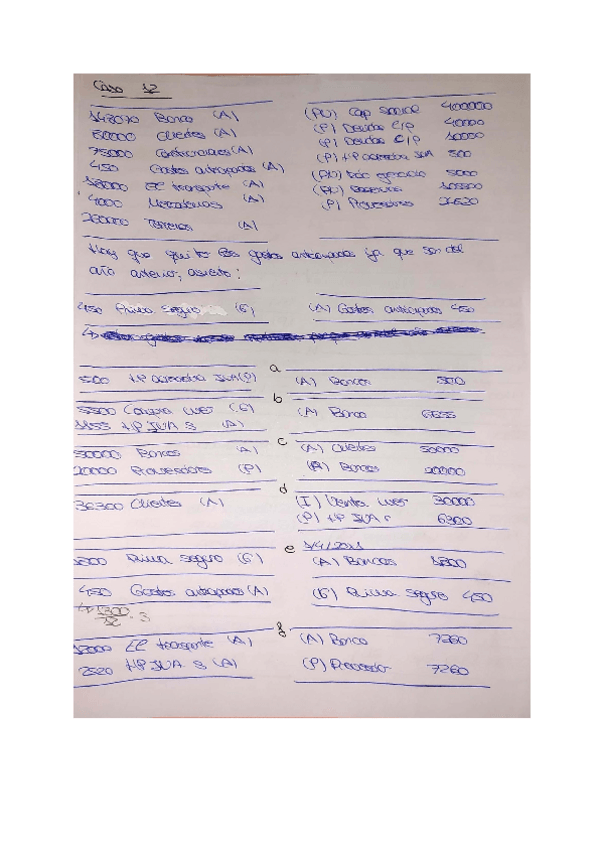 Caso 12
148070 Banco (A) (PN) Cap social 400000
60000 Clientes (A) (P) Deudas l/p 40000
75000 Construcciones (A) (P) Deudas c/p 10000
450 Gastos anticipados (A) (P) HP acreedora IVA 500
18000 EE transporte (A) (PN) Rdo ejercicio 5000
4000 Mercaderías (A) (PN) Reservas
260000 Terrenos (A) (P) Proveedores
Hay que quitar los gastos anticipados ya que son del
año anterior; asiento:
450 Prima Seguro (G) (A) Gastos anticipados 450
a
500 HP acreedora IVA (P) (A) Bancos 500
b
5500 Compra mer (G) (A) Banco 6655
1155 HP IVA S (A)
c
50000 Bancos (A) (A) Clientes 50000
20000 Proveedores (P) (A) Bancos 20000
d
36300 Clientes (A) (I) Venta mer 30000
(P) HP IVA r 6300
e 1/4/2021
1800 Prima seguro (G) (A) Bancos 1800
450 Gastos anticipados (A) (G) Prima seguro 450
12 · 3
f
12000 EE transporte (A) (A) Banco 7260
2520 HP IVA S (A) (P) Proveedor 7260